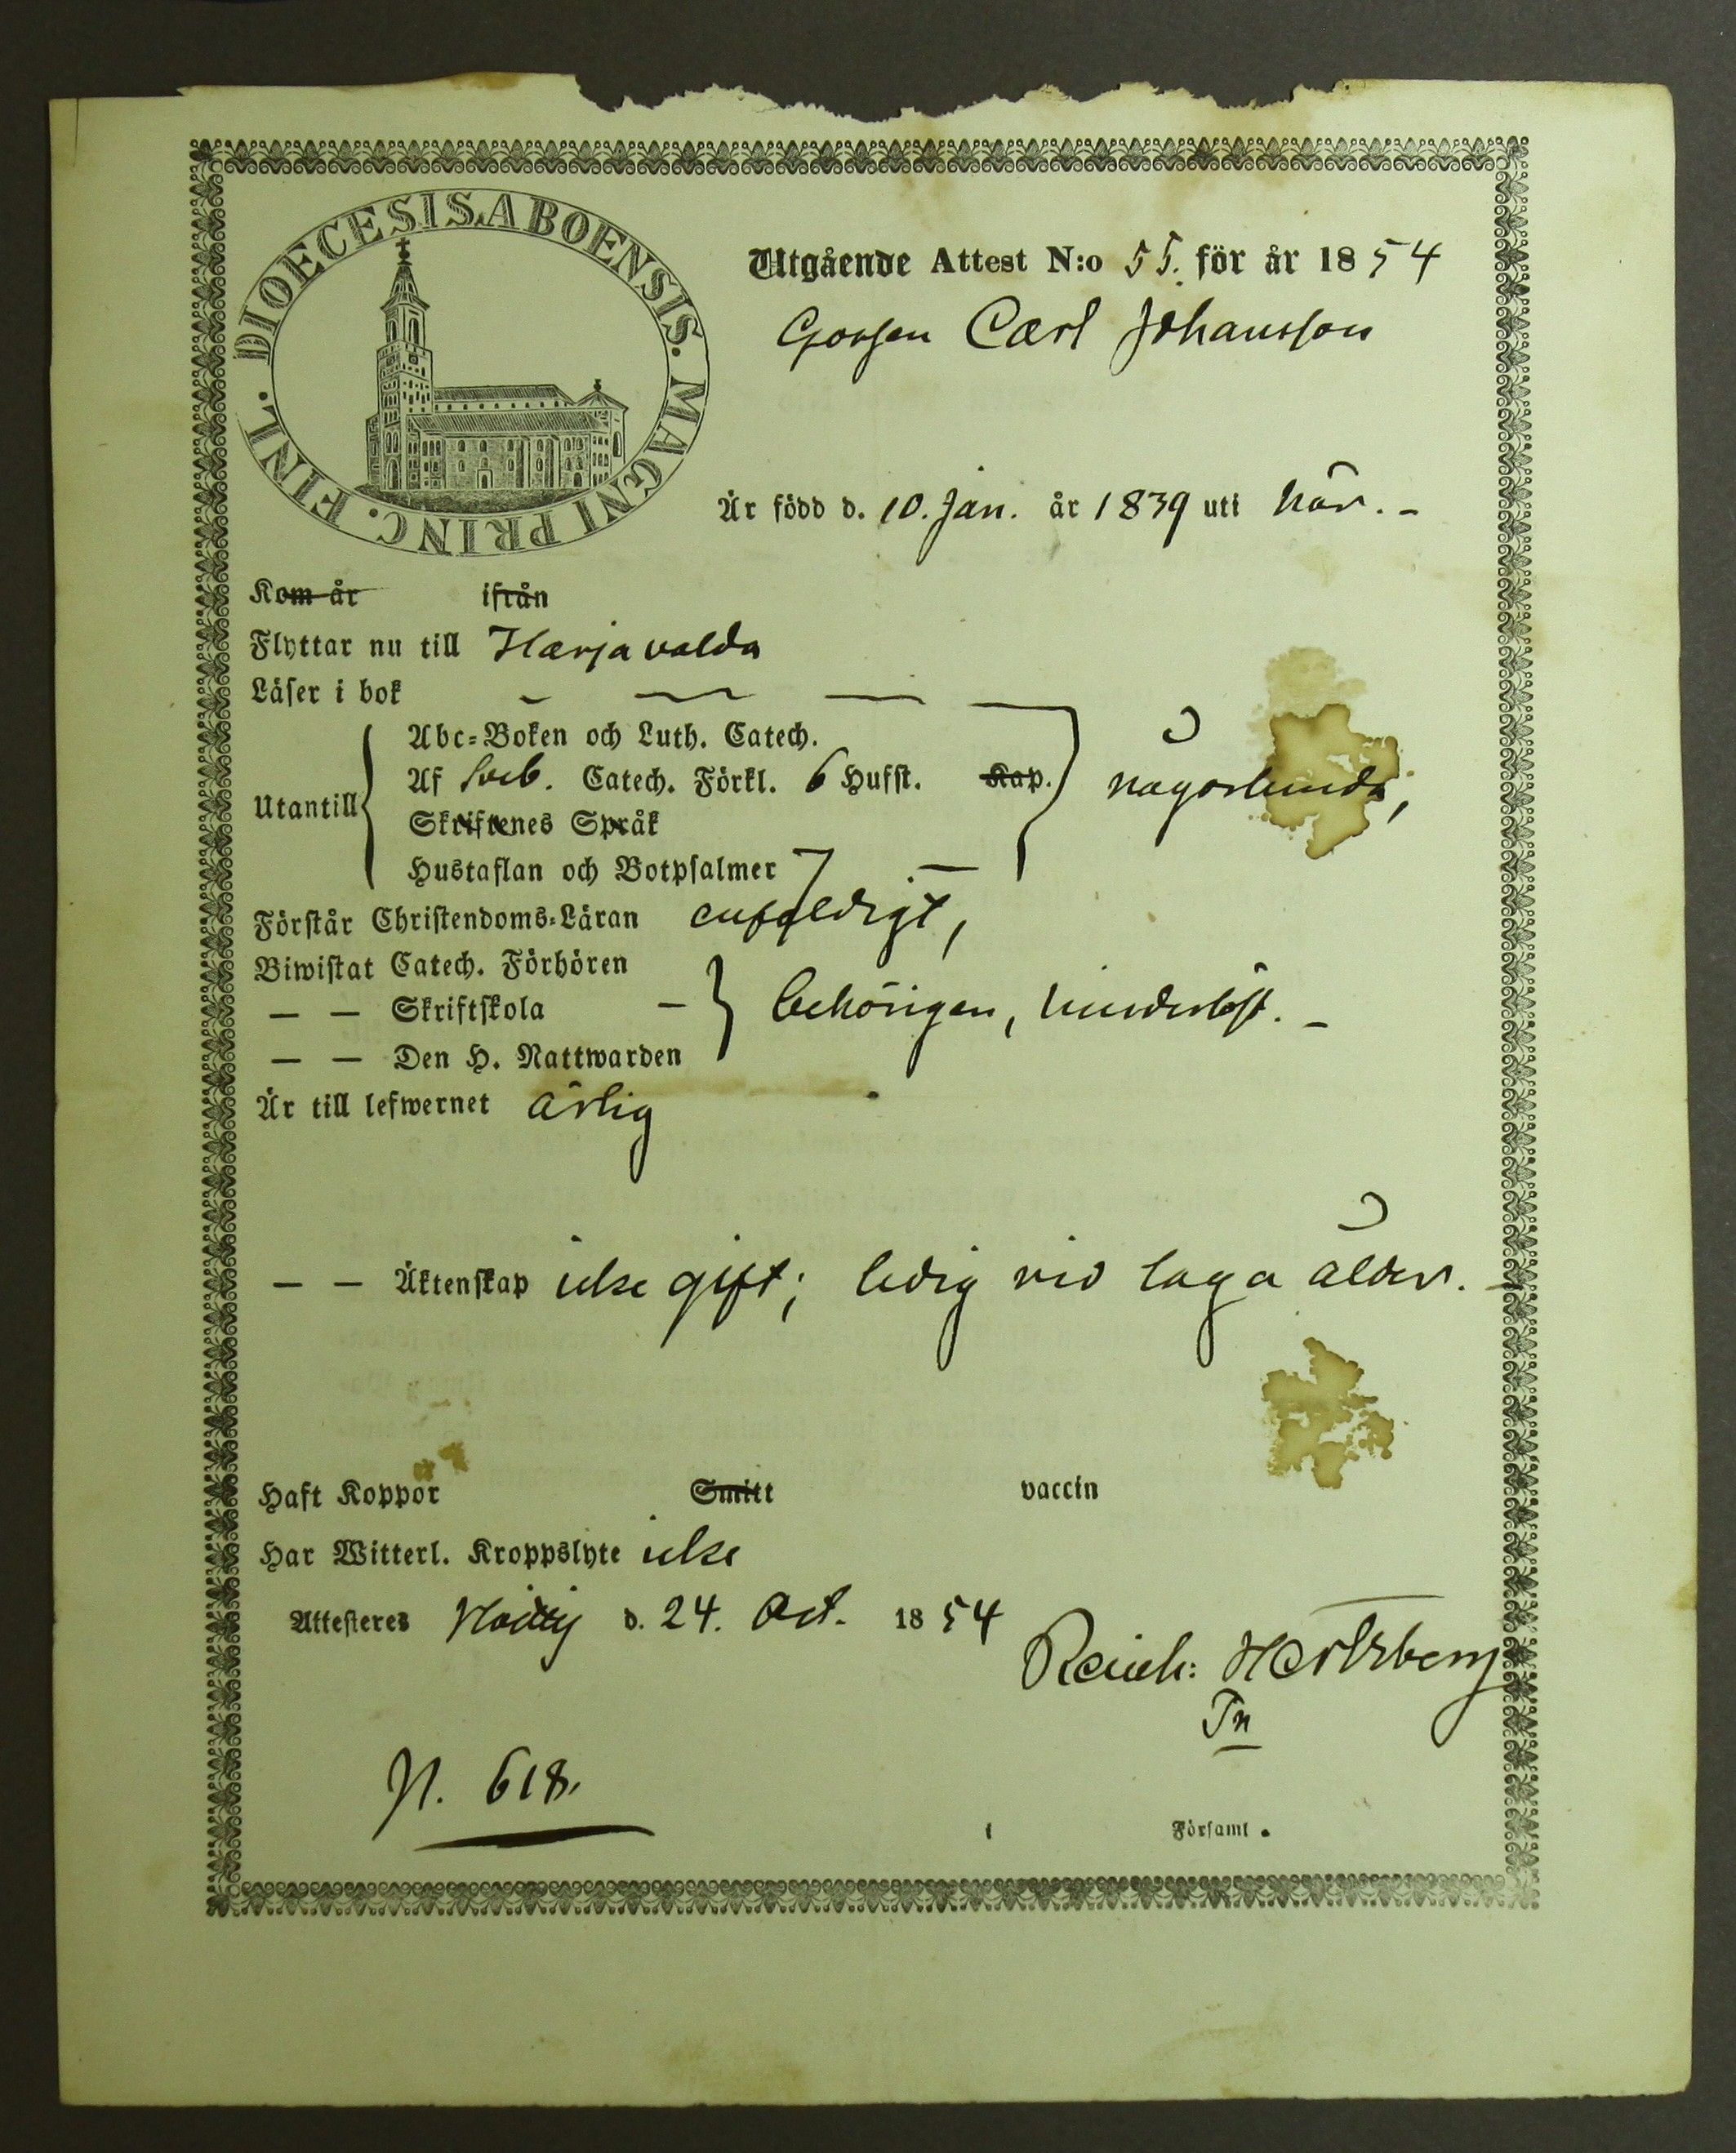 DIOECESIS ABOENSIS. MAGNI PRINC. FINL.
Utgående Attest N:o 55. för år 1854
Gossen Carl Johansson
Är född d. 10. Jan. år 1839 uti här. -
Kom år ifrån
Flyttar nu till Harjavalda
Läser i bok
Utantill
Abc-Boken och Luth. Catech.
Af Sveb. Catech. Förkl. 6 Hufst. Kap.
någorlunda,
Skriftenes Språk
Hustaflan och Botpsalmer
Förstår Christendoms-Läran enfaldigt,
Biwistat Catech. Förhören
— — Skriftskola - behörigen, hinderlöst. -
— — Den H. Nattwarden
Är till lefwernet ärlig
— — Äktenskap icke gift; ledig vid laga ålder. -
Haft Koppor Smitt vaccin
Har Witterl. Kroppslyte icke
Attesteres d. 24. Oct. 1854
Reinh: Hertzberg
N. 618.
i Församl.